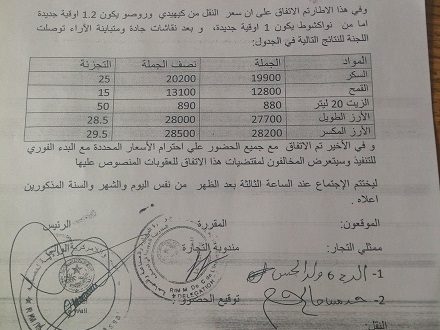 وفي هذا الاطار تم الاتفاق على ان سعر النقل من كيهيدي وروصو يكون 1.2 اوقية جديدة
اما من نواكشوط يكون 1 اوقية جديدة، و بعد نقاشات جادة ومتباينة الآراء توصلت
اللجنة للنتائج التالية في الجدول:
المواد الجملة نصف الجملة التجزئة
السكر 19900 20200 25
القمح 12800 13100 15
الزيت 20 ليتر 880 890 50
الأرز الطويل 27700 28000 28.5
الأرز المكسر 28200 28500 29.5
و في الأخير تم الاتفاق مع جميع الحضور علي احترام الأسعار المحددة مع البدء الفوري
للتنفيذ وسيتعرض المخالفون لمقتضيات هذا الاتفاق للعقوبات المنصوص عليها
ليختتم الإجتماع عند الساعة الثالثة بعد الظهر من نفس اليوم والشهر والسنة المذكورين
اعلاه .
الموقعون: المقررة الرئيس
ممثلي التجار: مندوبة التجارة
1-
2- توقيع الحضور:
النقل: